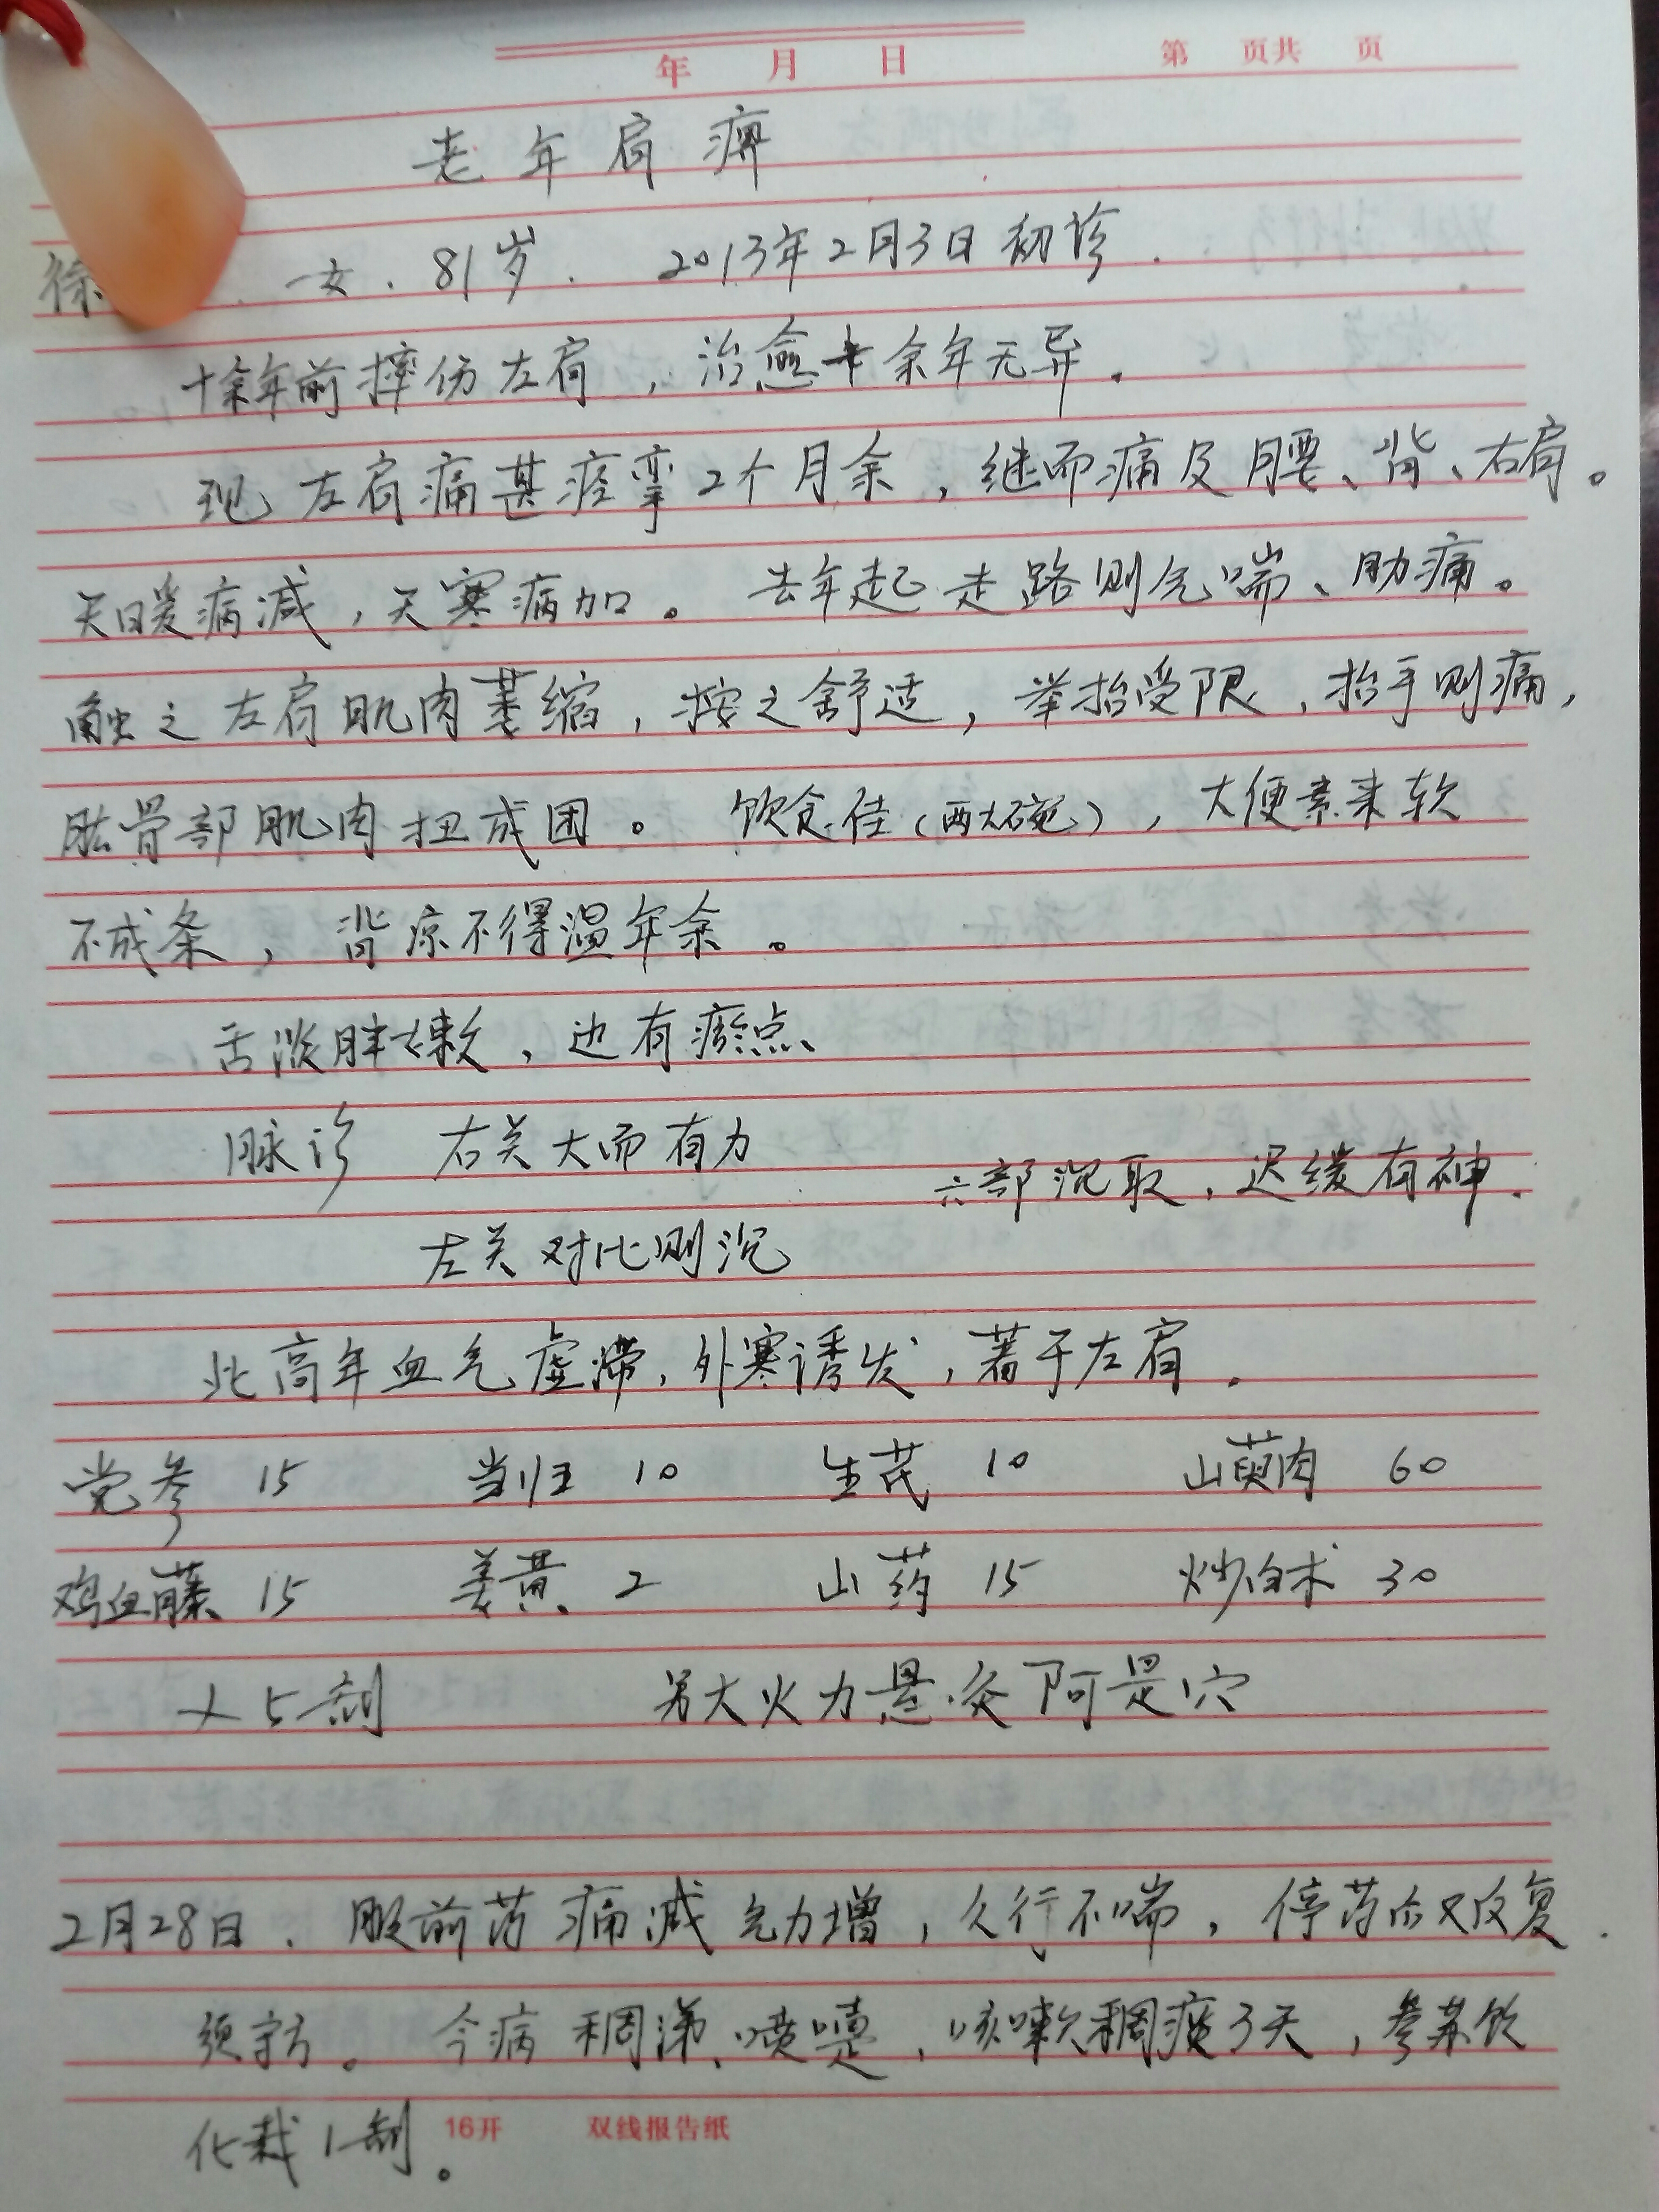 年 月 日 第 页共 页
老年肩痹
徐 女. 81岁. 2013年2月3日初诊.
十余年前摔伤左肩，治愈十余年无异.
现左肩痛甚痉挛2个月余，继而痛及腰、背、右肩。
天暖病减，天寒病加。去年起走路则气喘、肋痛。
触之左肩肌肉萎缩，按之舒适，举抬受限，抬手则痛，
肱骨部肌肉扭成团。饮食佳（两大碗），大便素来软
不成条，背凉不得温年余。
舌淡胖嫩，边有瘀点、
脉诊 右关大而有力
六部沉取，迟缓有神.
左关对比则沉
此高年血气虚滞，外寒诱发，著于左肩.
党参 15 当归 10 生芪 10 山萸肉 60
鸡血藤 15 姜黄 2 山药 15 炒白术 30
×5剂 另大火力悬灸阿是穴
2月28日. 服前药痛减气力增，久行不喘，停药后又反复.
须守方。今病稠涕、喷嚏，咳嗽稠痰3天，参苏饮
化裁1剂。
16开 双线报告纸